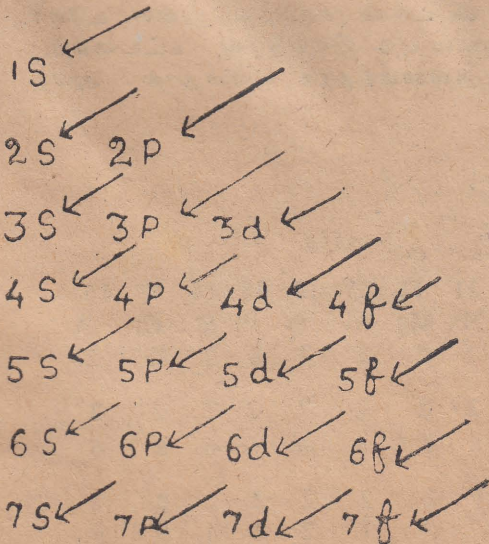 1S
2S 2P
3S 3P 3d
4S 4P 4d 4f
5S 5P 5d 5f
6S 6P 6d 6f
7S 7P 7d 7f